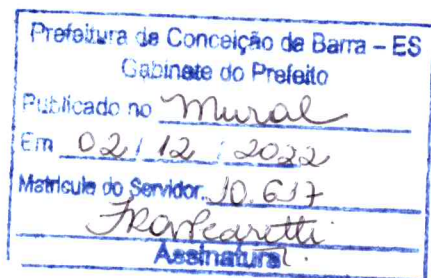 Prefeitura de Conceição da Barra – ES
Gabinete do Prefeito
Publicado no Mural
Em 02 / 12 / 2022
Matrícula do Servidor. 10.637
Assinatura